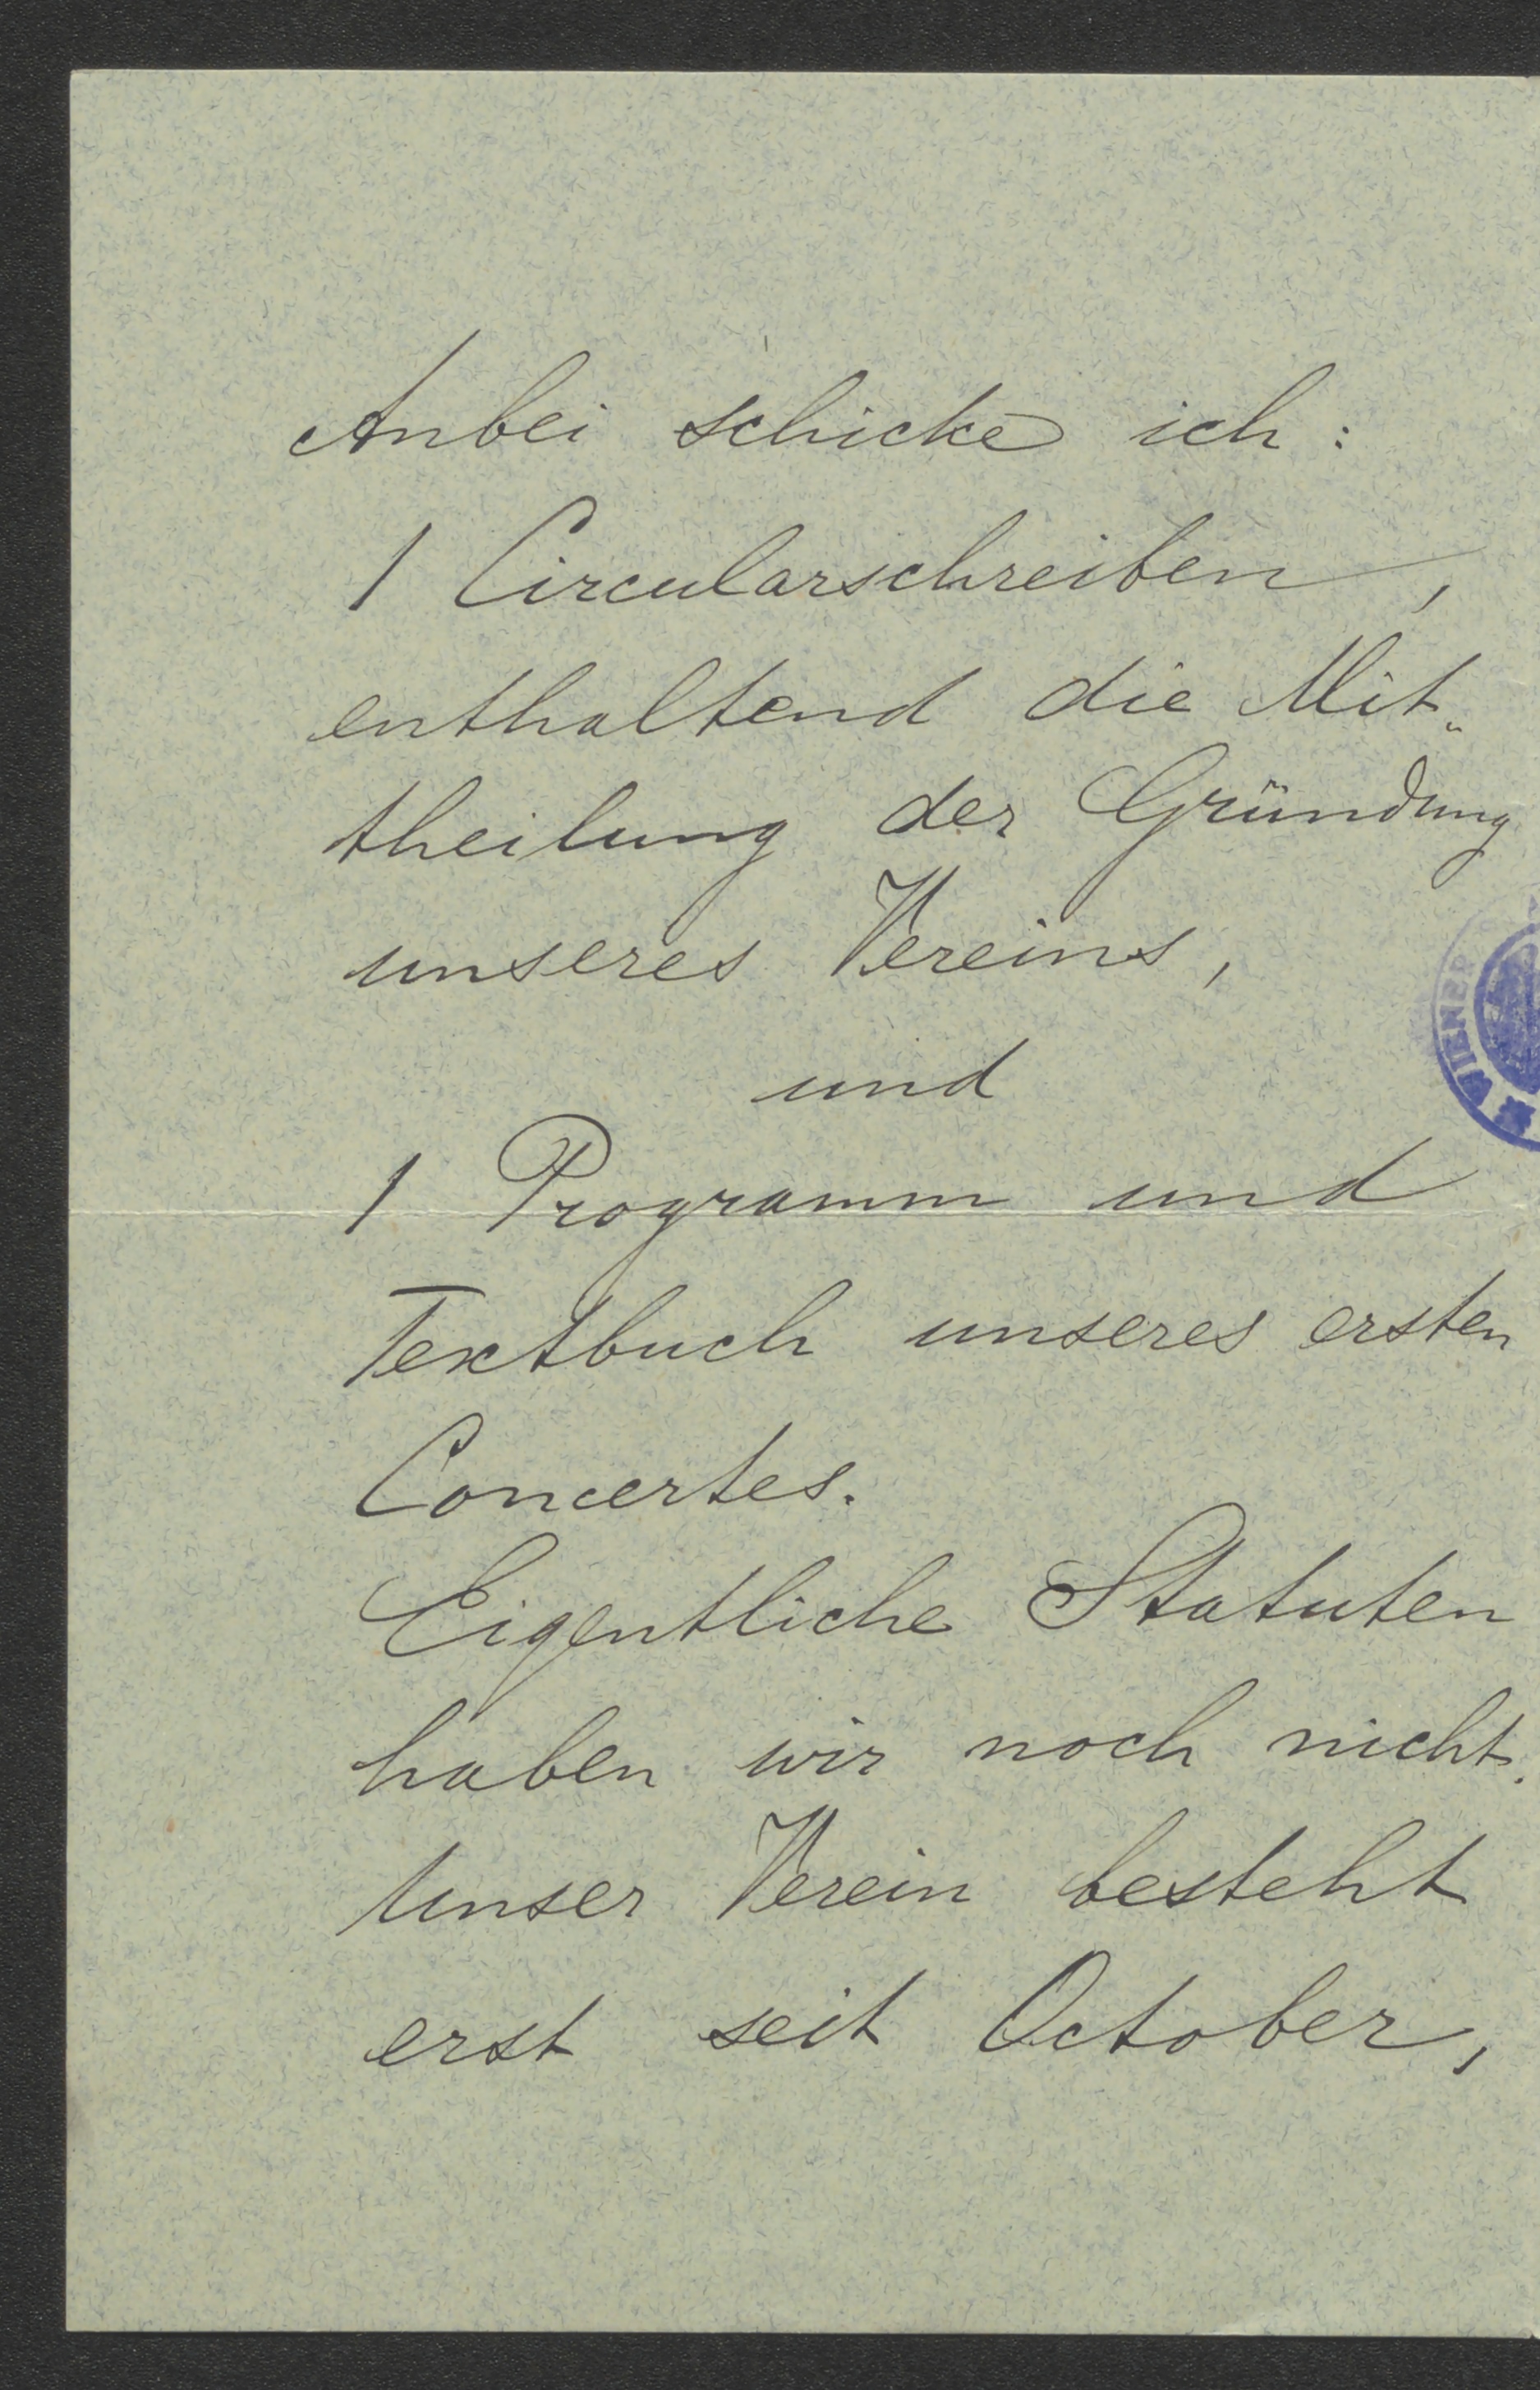 Anbei schicke ich:
1 Circularschreiben,
enthaltend die Mit„
theilung der Gründung
unseres Vereins,
und
1 Programm und
Textbuch unseres ersten
Concertes.
Eigentliche Statuten
haben wir noch nicht.
Unser Verein besteht
erst seit October,
WIENER